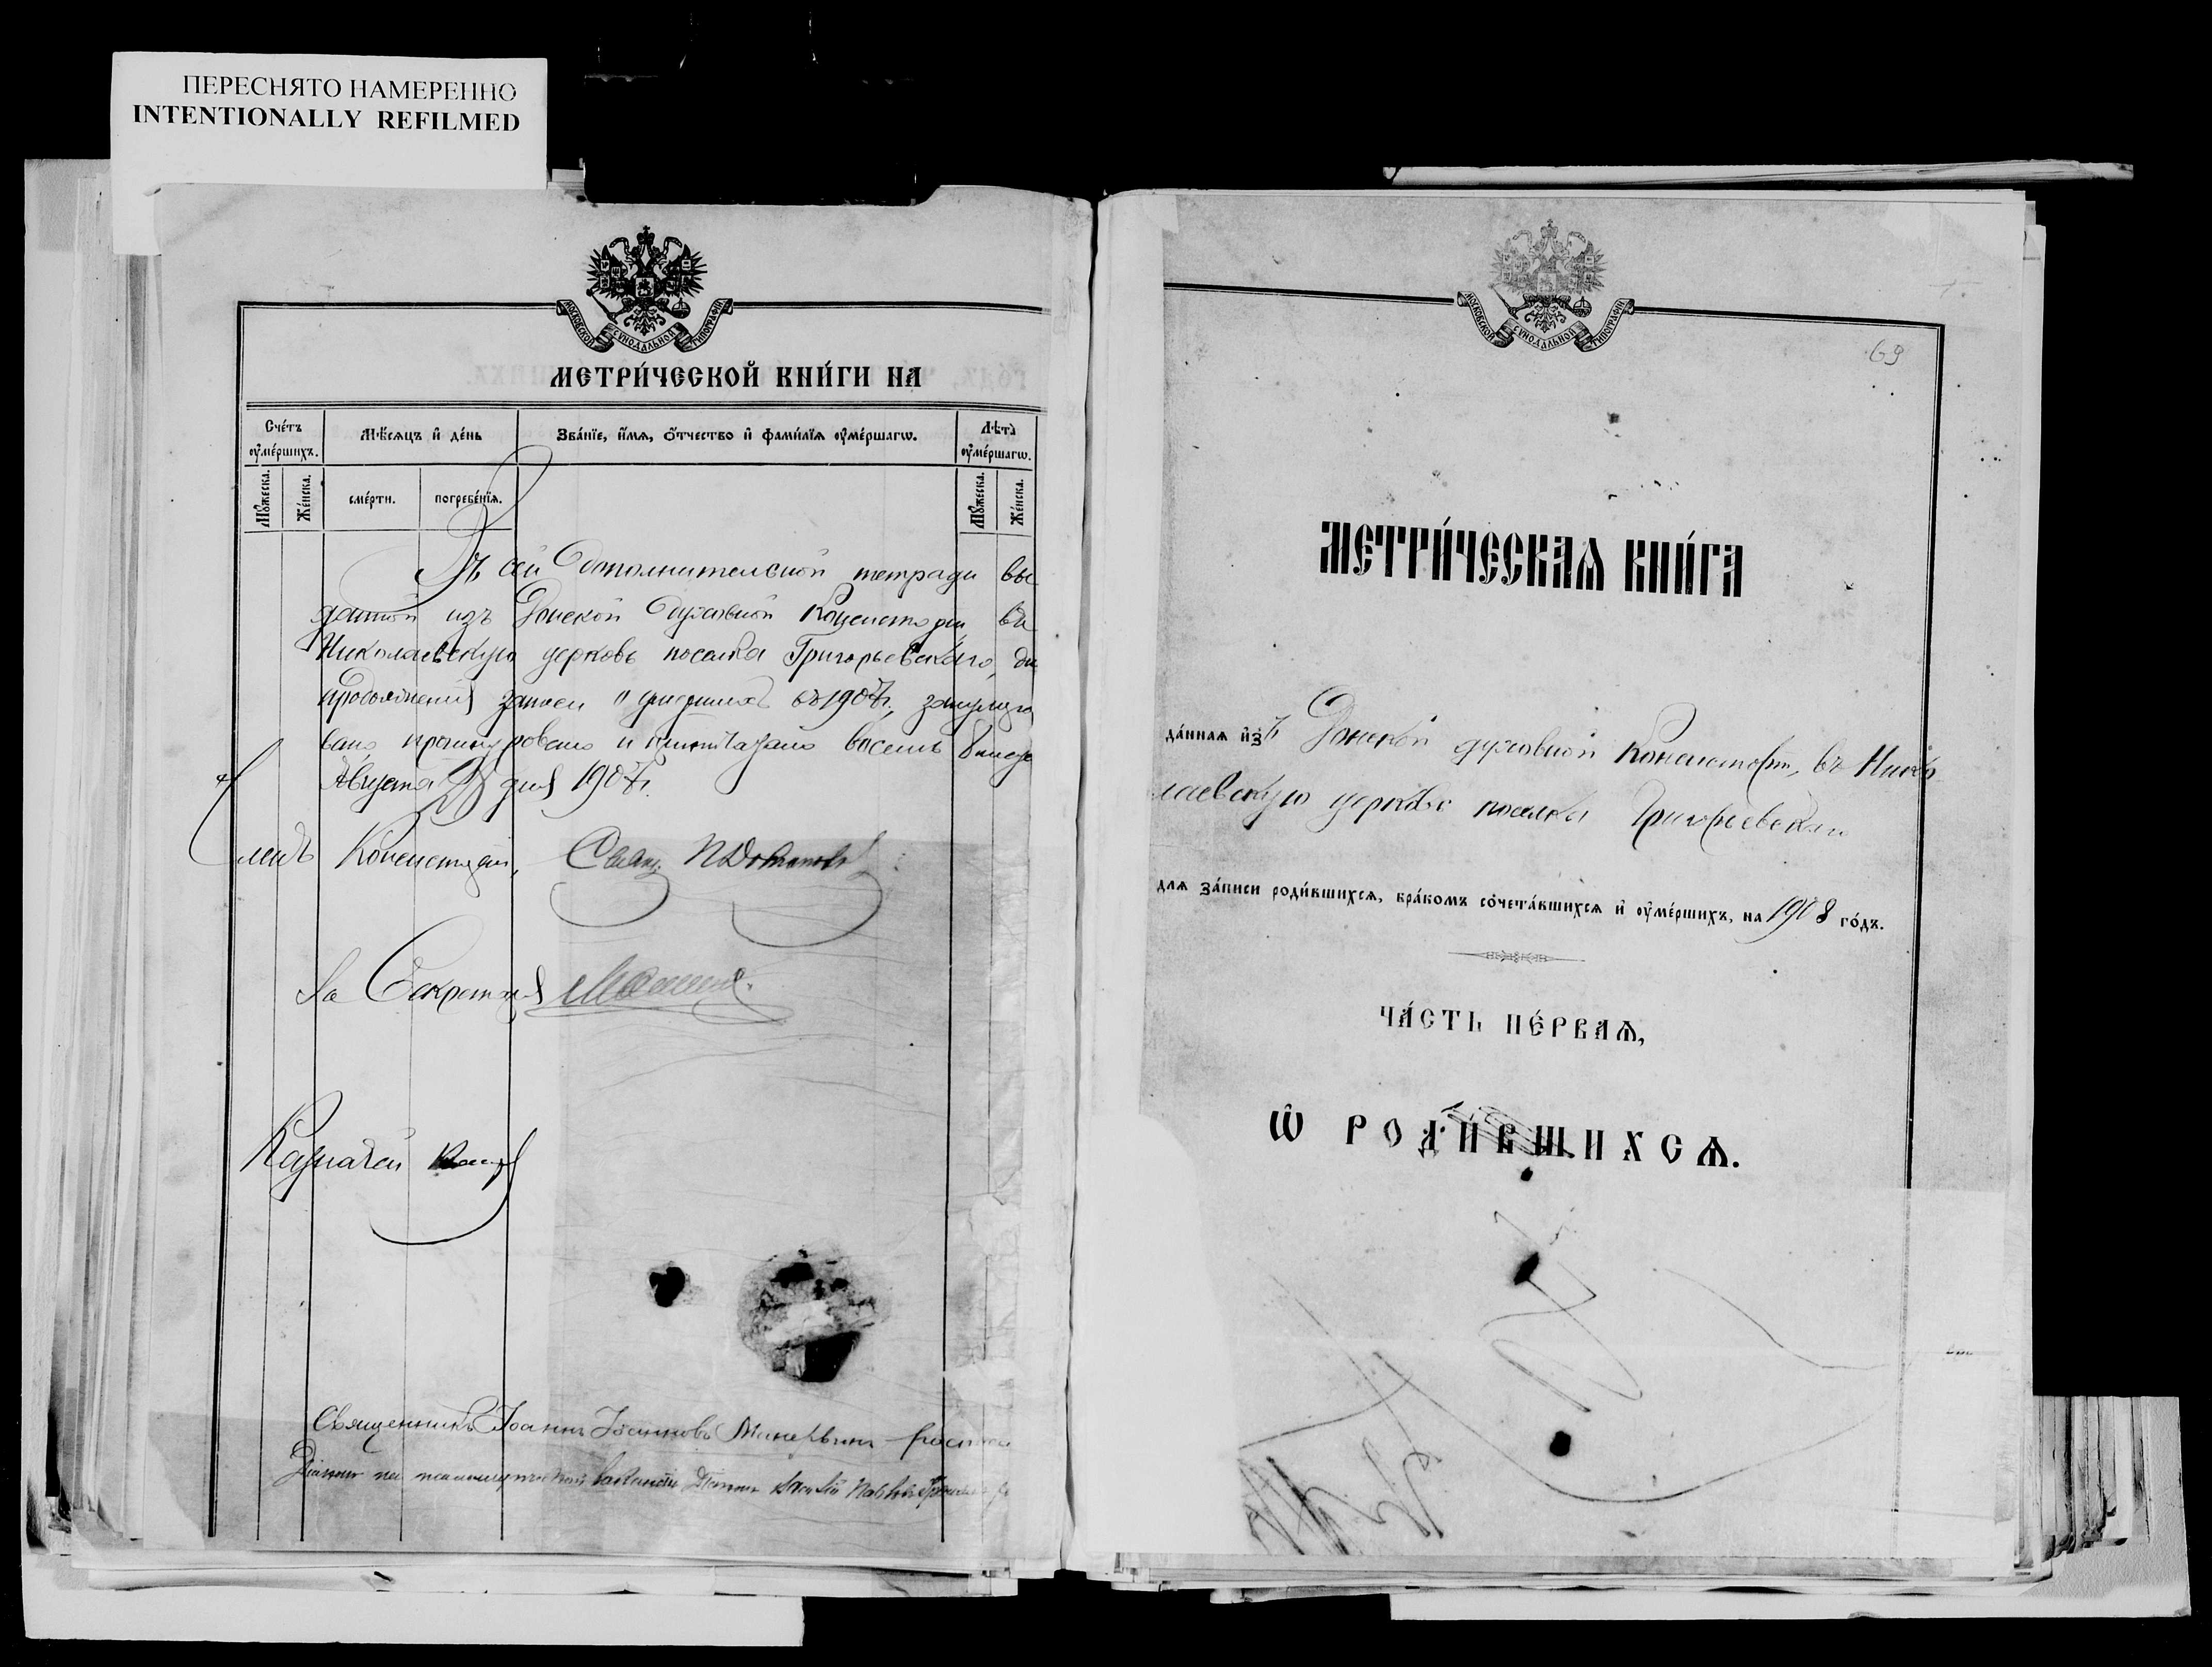 ПЕРЕСНЯТО НАМЕРЕННО
INTENTIONALLY REFILMED
МОСКОВСКОЙ СѴНОДАЛЬНОЙ ТИПОГРАФІИ
МЕТРИ́ЧЕСКОЙ КНИ́ГИ НА
Сче́тъ ѹ҆ме́ршихъ.
Мѣ́сяцъ и҆ де́нь
Зва́нїе, и҆́мѧ, ѻ҆́тчество и҆ фами́лїѧ ѹ҆ме́ршагѡ.
Лѣ́та ѹ҆ме́ршагѡ.
Мꙋ́жеска.
Же́нска.
сме́рти.
погребе́нїѧ.
Мꙋ́жеска.
Же́нска.
Въ сей дополнительной тетради вы
данной изъ Донской Духовной Консисторіи въ
Николаевскую церковь поселка Григорьевскаго, для
продолженія записи о умершихъ въ 1907 г., занумеро
вано, прошнуровано и припечатано восемь 8 листовъ
Августа 28 дня 1907 г.
Членъ Консисторіи, Свящ.
За Секретаря
Казначей
Священникъ Іоаннъ Іоанновъ Минервинъ
Діаконъ на псаломщической вакансіи Діаконъ Василій
МОСКОВСКОЙ СѴНОДАЛЬНОЙ ТИПОГРАФІИ
69
МЕТРИ́ЧЕСКАѦ КНИ́ГА
да́ннаѧ и҆зъ Донской духовной Консисторіи, въ Нико
лаевскую церковь поселка Григорьевскаго
длѧ за́писи роди́вшихсѧ, бра́комъ сочета́вшихсѧ и҆ ѹ҆ме́ршихъ, на 1908 го́дъ.
ЧА́СТЬ ПЕ́РВАѦ,
Ѽ РОДИ́ВШИХСѦ.